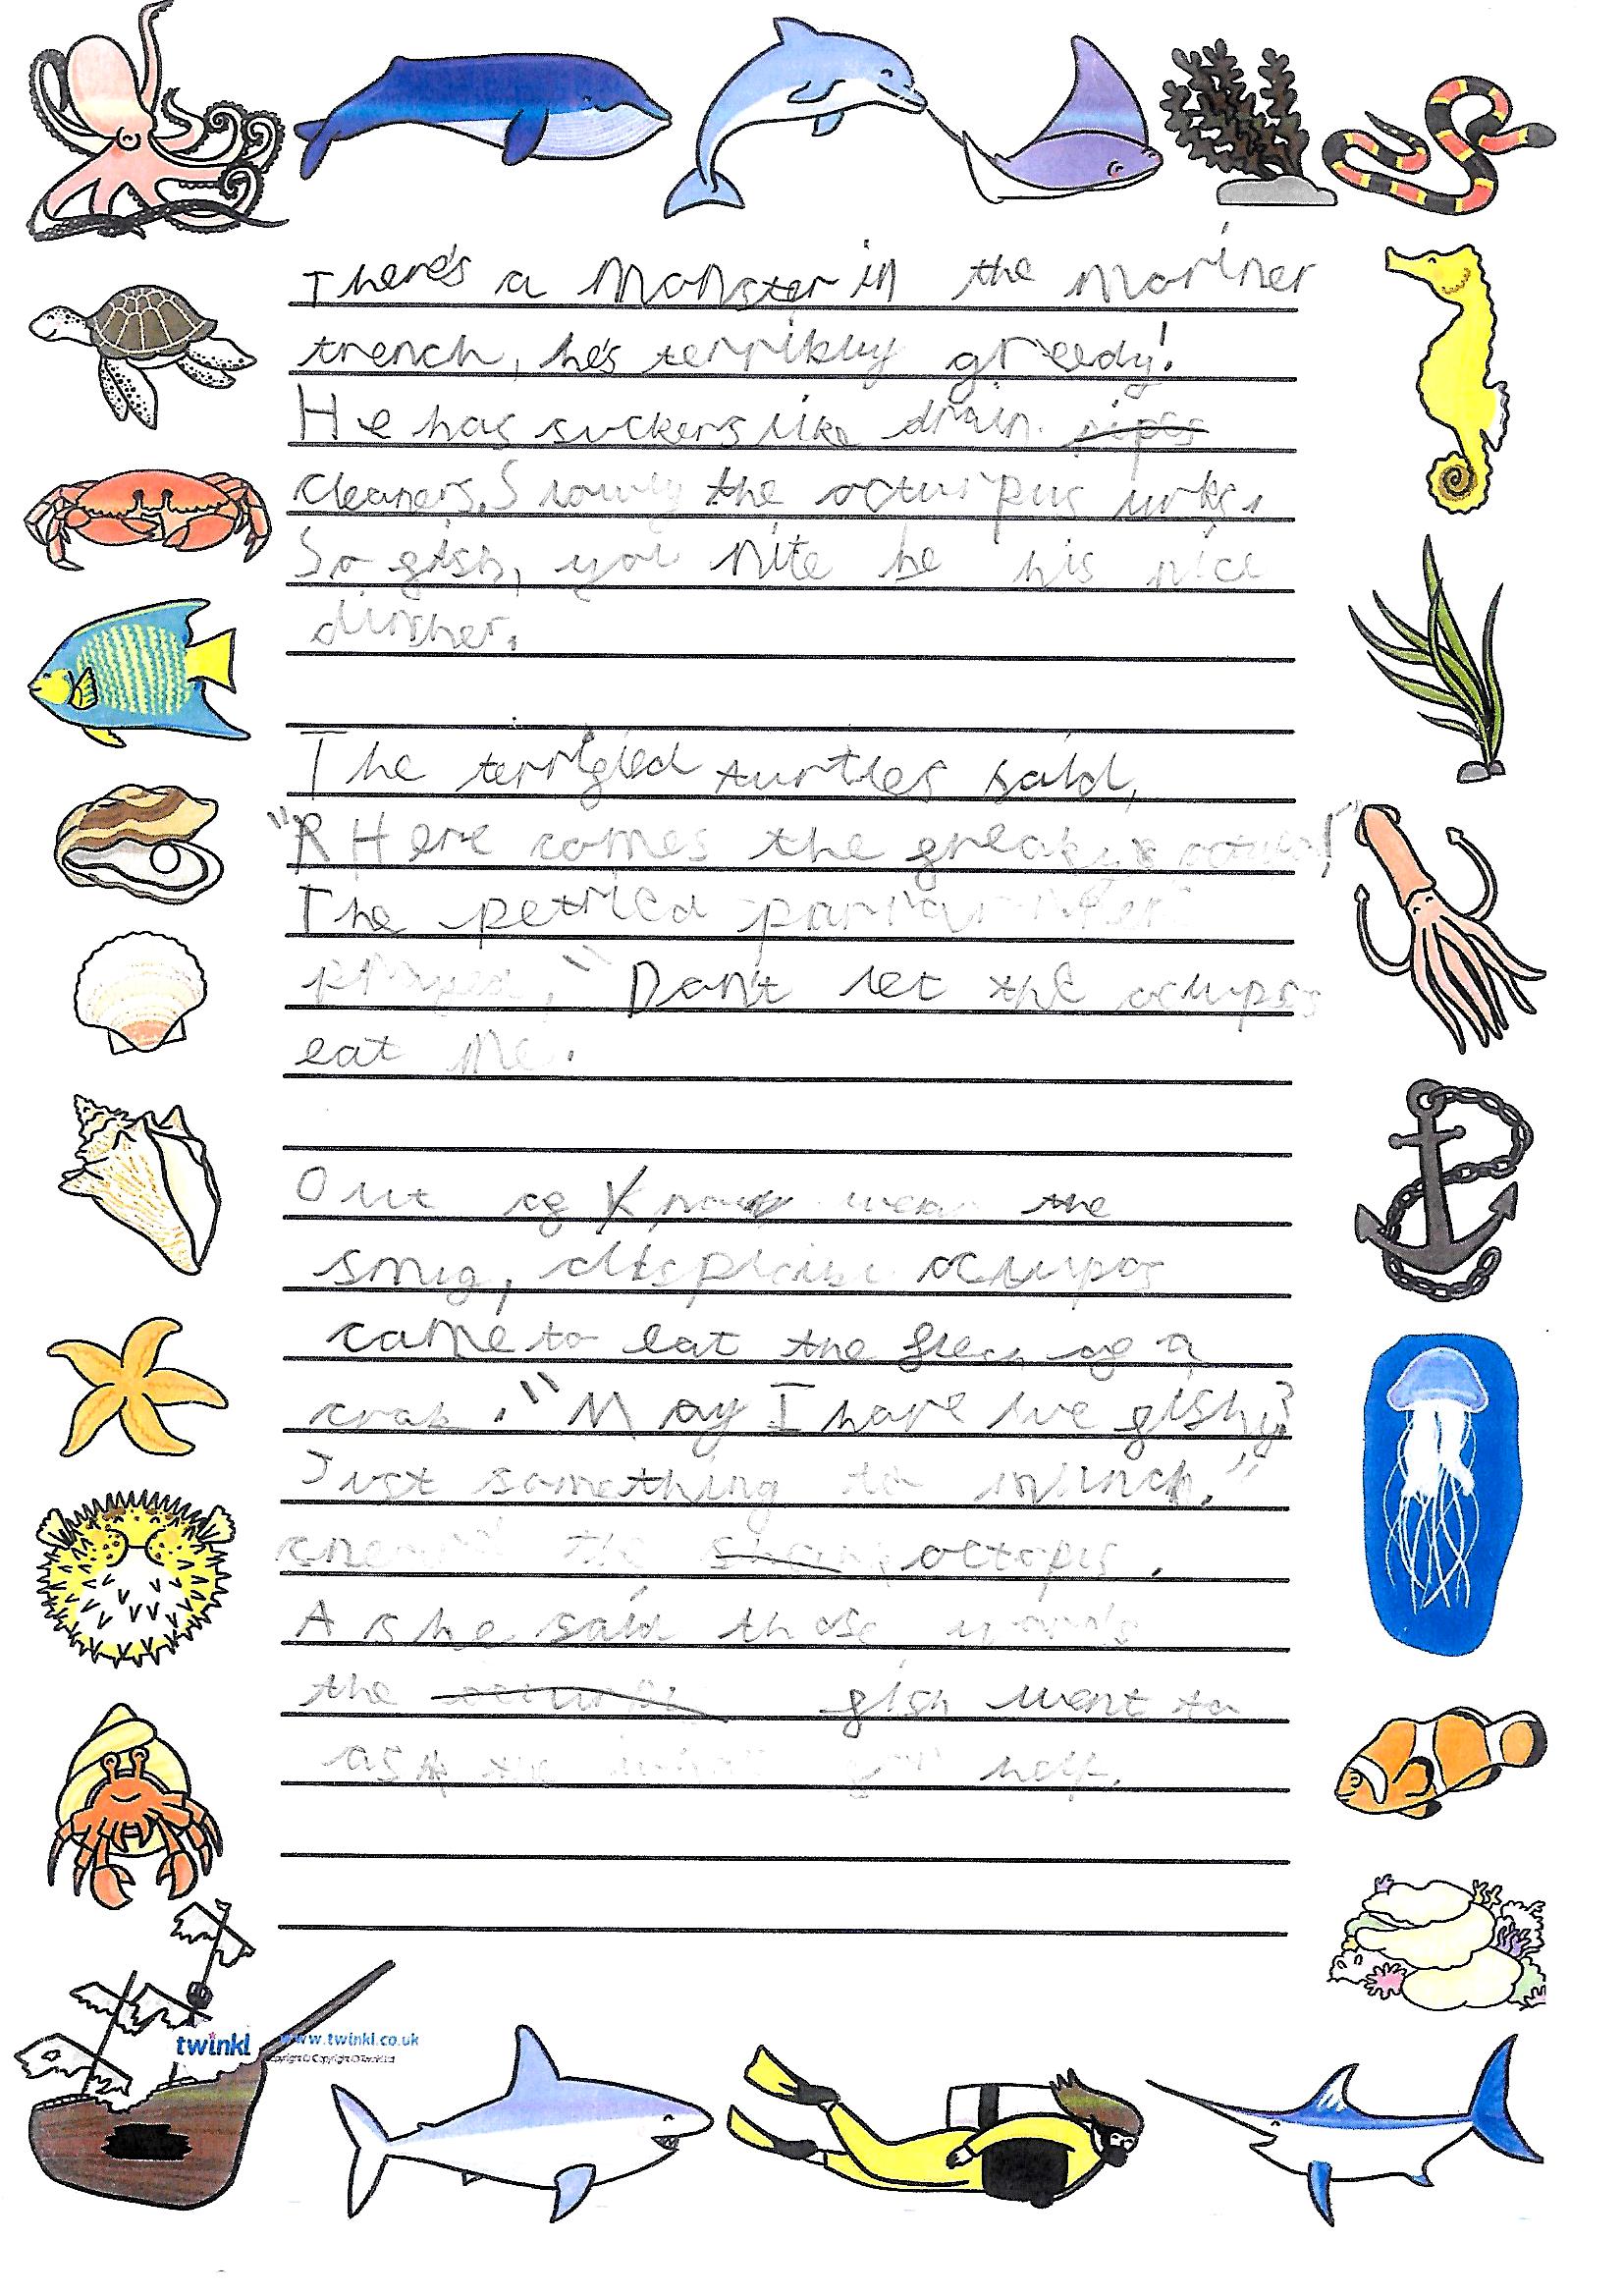 There's a Monster in the Mariner
trench, he's terribly greedy!
He has suckers like drain pipes
cleaners. Slowly the octurpus lurks.
So fish, you nite be his nice
dinsher.
The terrified turtles said,
"R Here comes the great
The petried
"Don't let the ocrupss
eat me.
Out of Know wear the
smug, ocrupos
came to eat the flesh of a
crab. "May I have live fishy?
Just something to munch."
the octopus.
As he said those words
the fish went to
ask the for help.
twinkl www.twinkl.co.uk